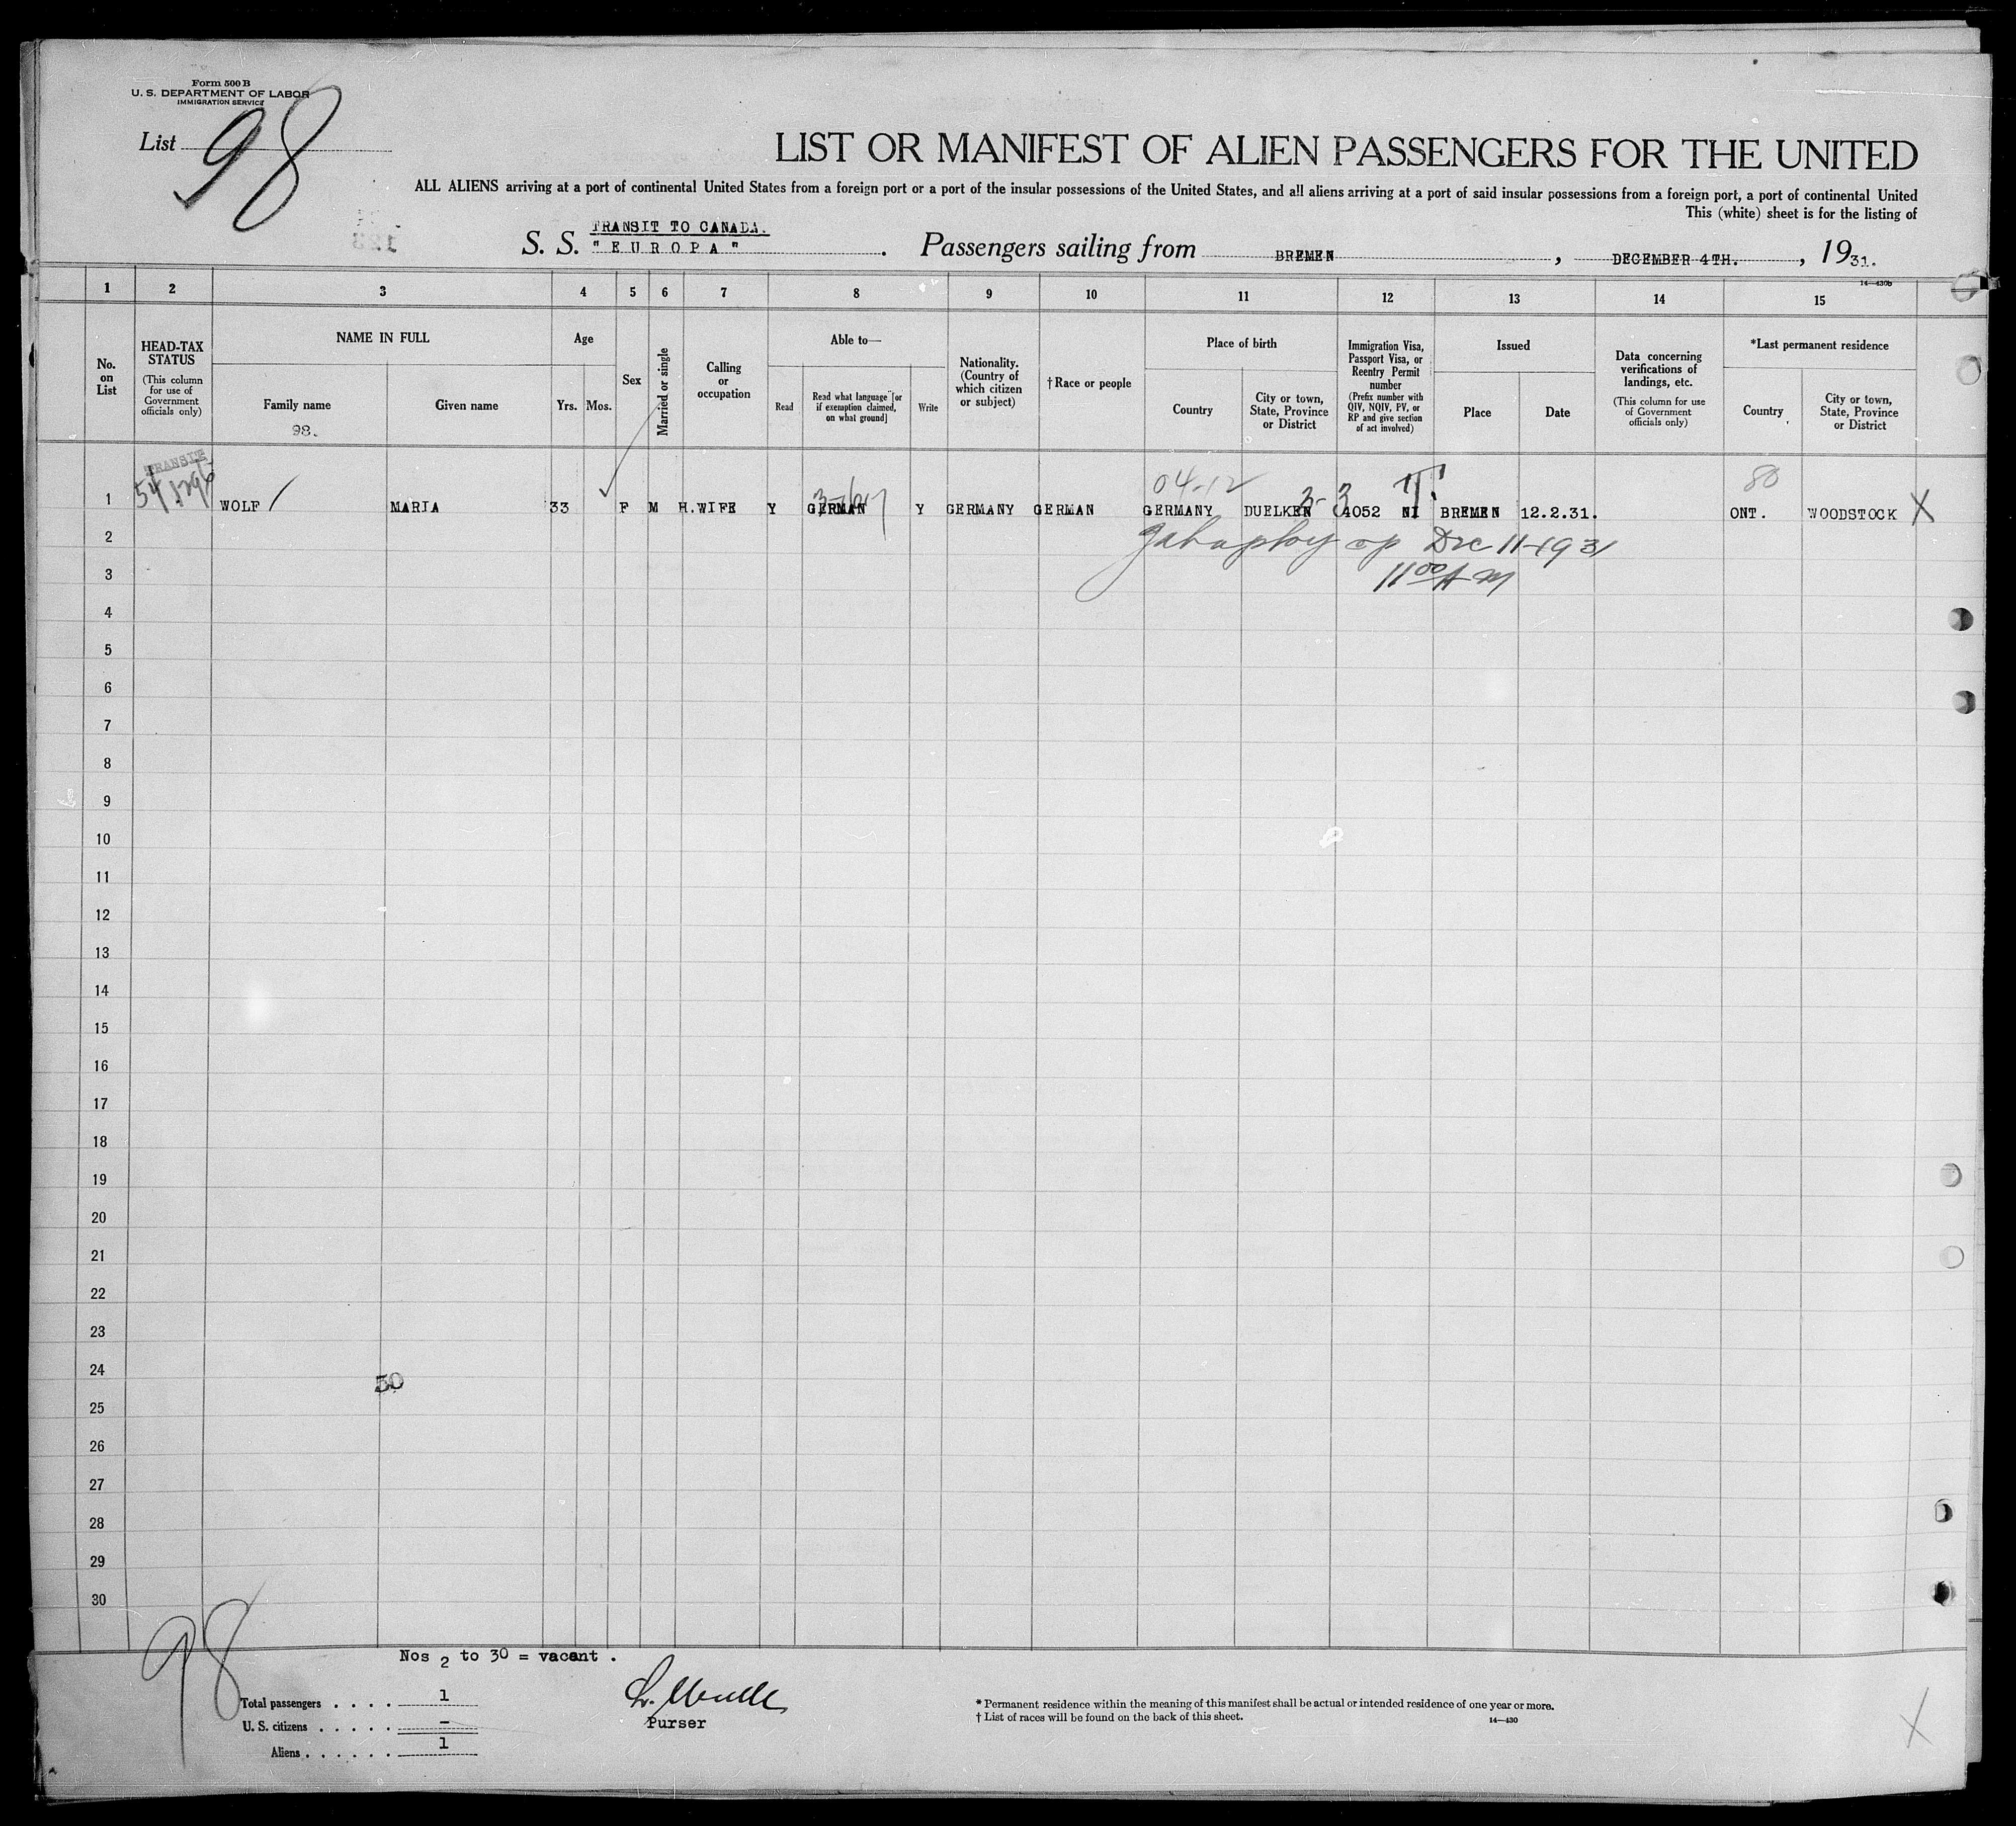 Form 500 B
U. S. DEPARTMENT OF LABOR
IMMIGRATION SERVICE
List 98
LIST OR MANIFEST OF ALIEN PASSENGERS FOR THE UNITED
ALL ALIENS arriving at a port of continental United States from a foreign port or a port of the insular possessions of the United States, and all aliens arriving at a port of said insular possessions from a foreign port, a port of continental United
This (white) sheet is for the listing of
TRANSIT TO CANADA.
S. S. "EUROPA". Passengers sailing from BREMEN, DECEMBER 4TH., 1931.
14—430b
1 2 3 4 5 6 7 8 9 10 11 12 13 14 15
No. on List
HEAD-TAX STATUS
(This column for use of Government officials only)
NAME IN FULL
Family name
98.
Given name
Age
Yrs. Mos.
Sex
Married or single
Calling or occupation
Able to—
Read
Read what language [or if exemption claimed, on what ground]
Write
Nationality. (Country of which citizen or subject)
†Race or people
Place of birth
Country
City or town, State, Province or District
Immigration Visa, Passport Visa, or Reentry Permit number
(Prefix number with QIV, NQIV, PV, or RP and give section of act involved)
Issued
Place
Date
Data concerning verifications of landings, etc.
(This column for use of Government officials only)
*Last permanent residence
Country
City or town, State, Province or District
TRANSIT
04-12
3-3
T.
80
1 WOLF MARIA 33 F M H.WIFE Y GERMAN Y GERMANY GERMAN GERMANY DUELKEN 4052 NI BREMEN 12.2.31. ONT. WOODSTOCK X
Dec 11-1931
2
11 00 AM
3
4
5
6
7
8
9
10
11
12
13
14
15
16
17
18
19
20
21
22
23
24
50
25
26
27
28
29
30
98
Nos 2 to 30 = vacant.
Total passengers . . . . 1
U. S. citizens . . . . . —
Aliens . . . . . . 1
Purser
* Permanent residence within the meaning of this manifest shall be actual or intended residence of one year or more.
† List of races will be found on the back of this sheet.
14—430
X